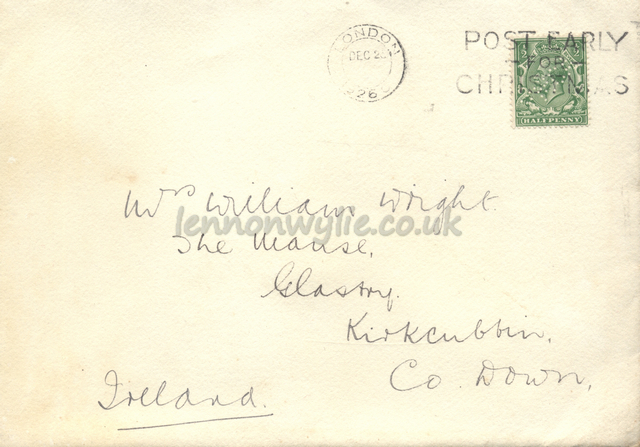 LONDON
DEC 2
26
POST EARLY
FOR
CHRISTMAS
HALFPENNY
Mrs William Wright.
lennonwylie.co.uk
The Manse,
Glastry.
Kirkcubbin,
Co. Down,
Ireland.